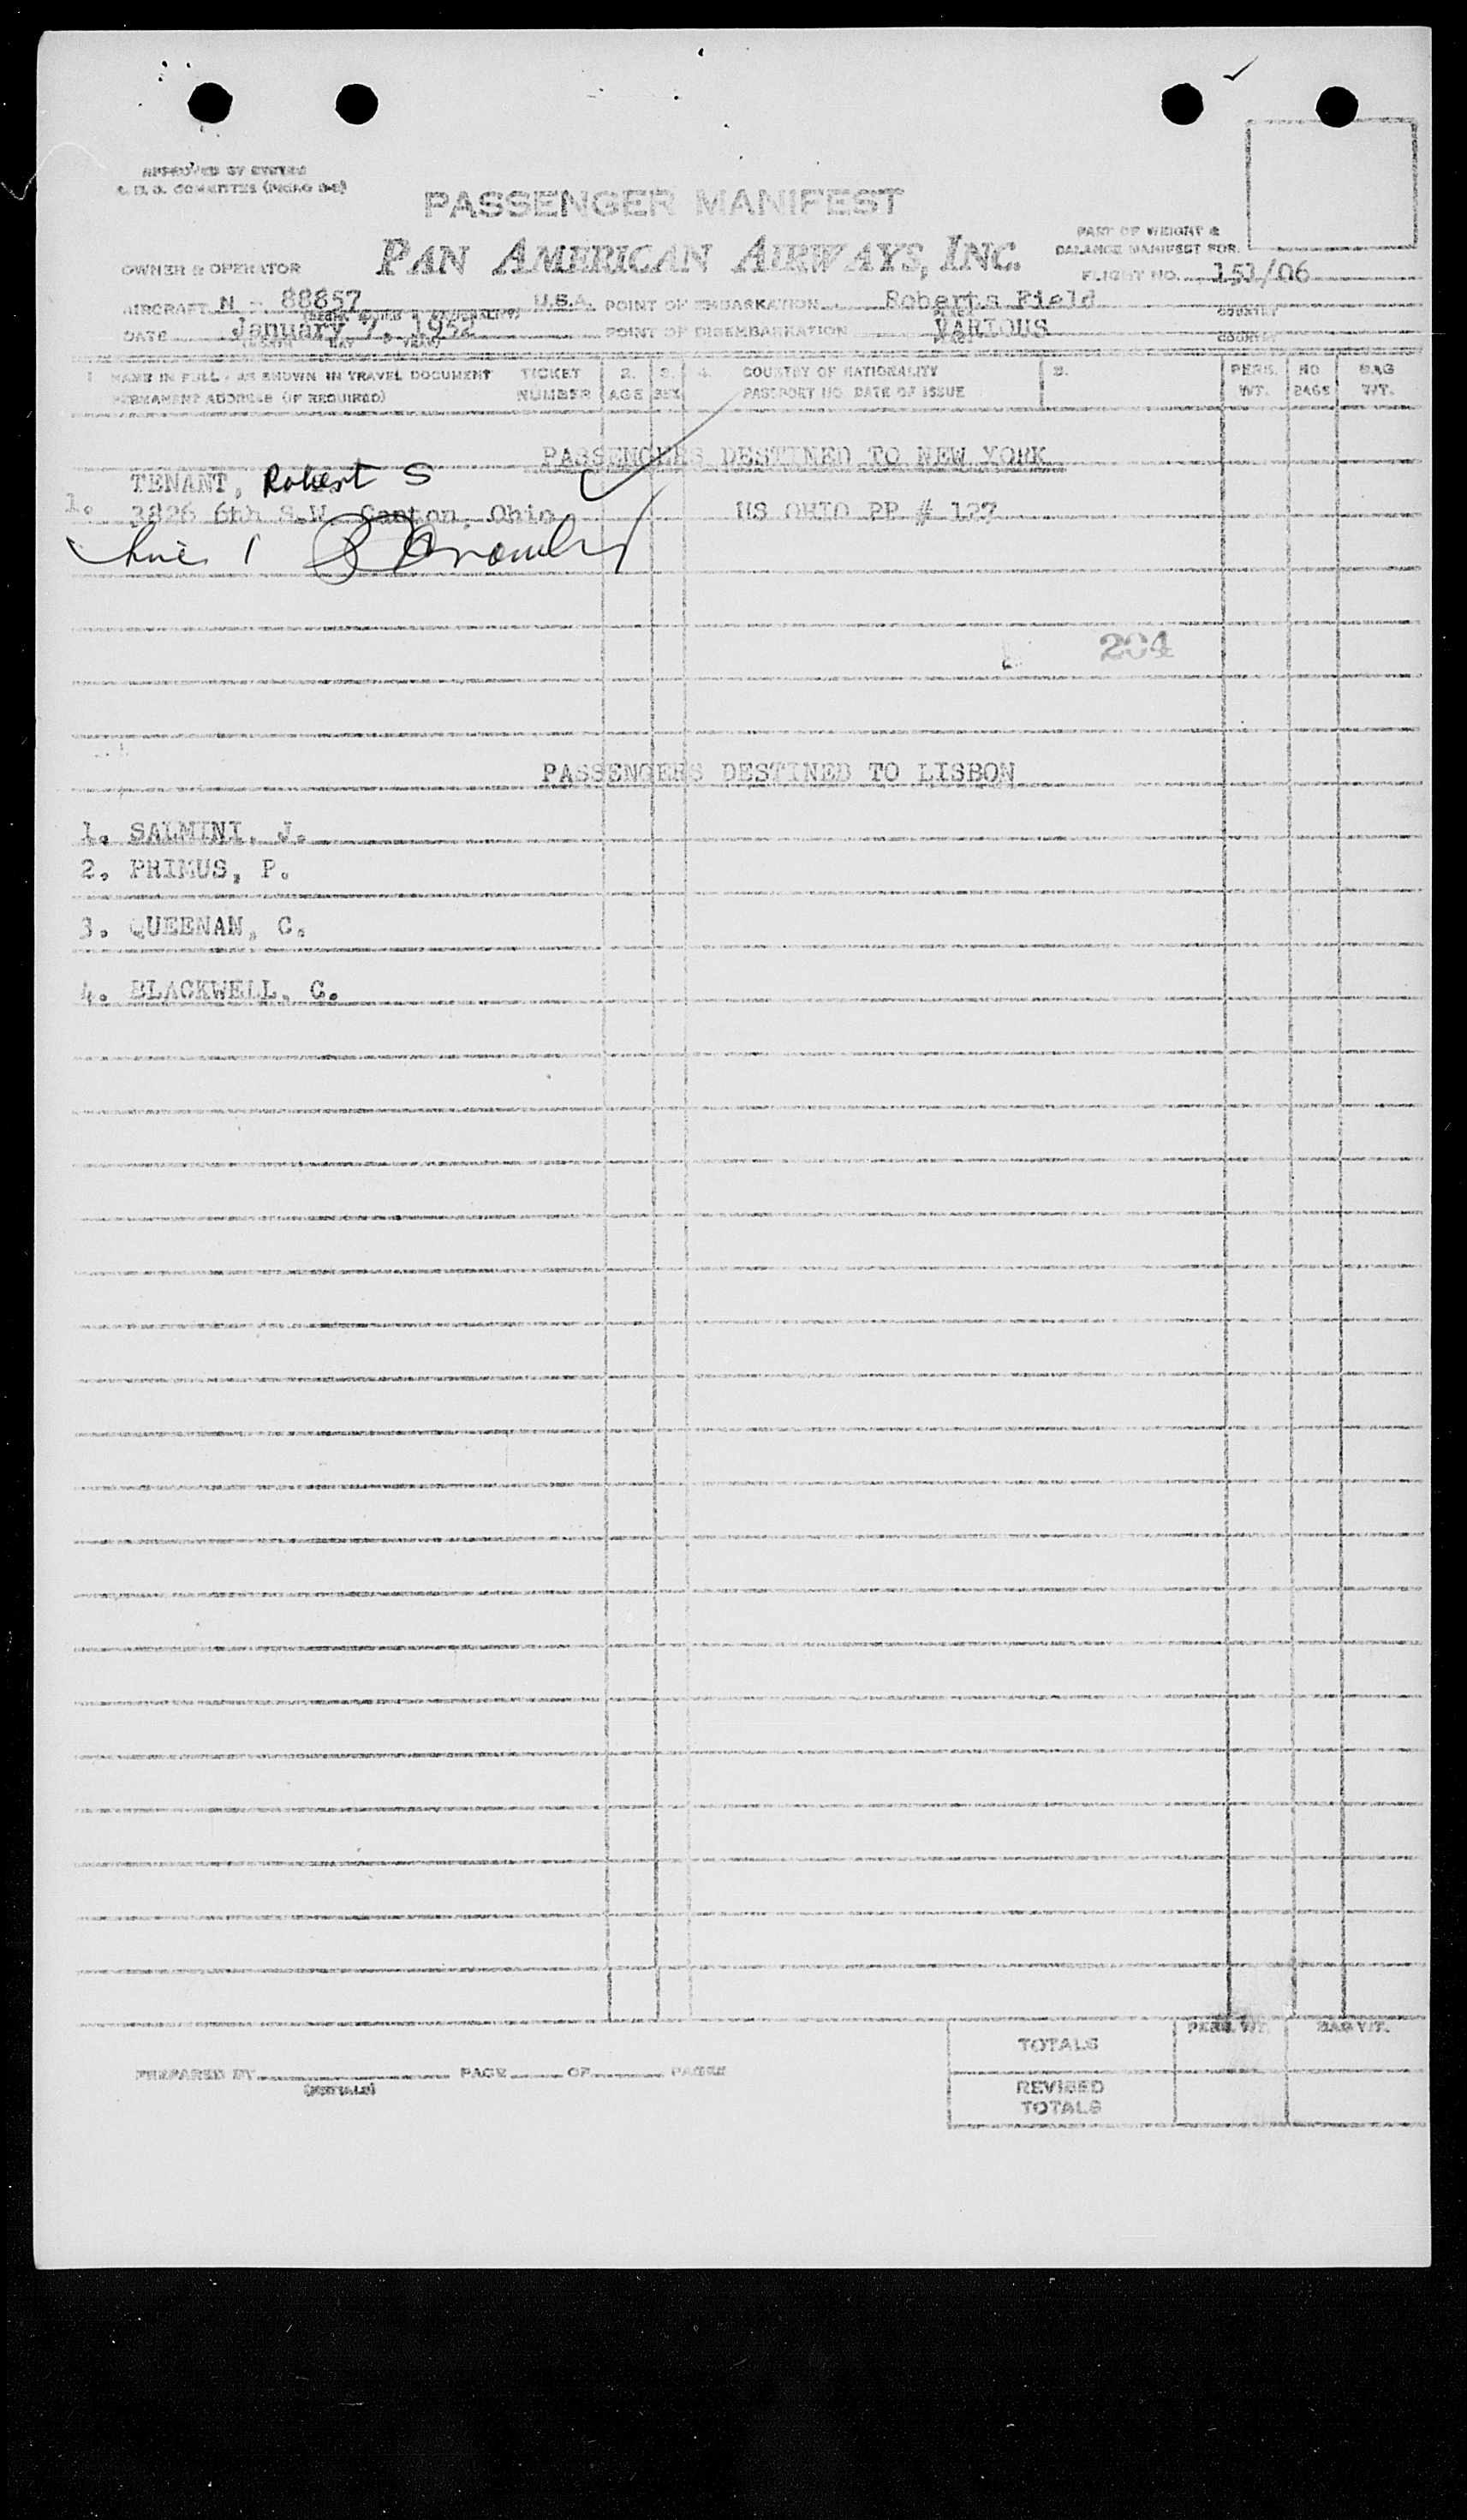 APPROVED BY
PASSENGER MANIFEST
PAN AMERICAN AIRWAYS, INC.
PART OF WEIGHT &
BALANCE MANIFEST FOR
OWNER & OPERATOR
FLIGHT NO. 151/06
AIRCRAFT N - 88857 U.S.A. POINT OF EMBARKATION Roberts Field
COUNTRY
DATE January 7, 1952 POINT OF DISEMBARKATION VARIOUS
COUNTRY
1 NAME IN FULL - AS SHOWN IN TRAVEL DOCUMENT TICKET 2. 3. 4. COUNTRY OF NATIONALITY PERS. NO BAG
PERMANENT ADDRESS (IF REQUIRED) NUMBER AGE SEX PASSPORT NO. DATE OF ISSUE WT. BAGS WT.
PASSENGERS DESTINED TO NEW YORK
TENANT, Robert S
1. 3826 6th S.W. Canton, Ohio US OHIO PP # 127
204
PASSENGERS DESTINED TO LISBON
1. SALMINI, J.
2. PRIMUS, P.
3. QUEENAN, C.
4. BLACKWELL, C.
TOTALS PERS. WT. BAG WT.
PREPARED BY PAGE OF PAGES
(INITIALS)
REVISED
TOTALS